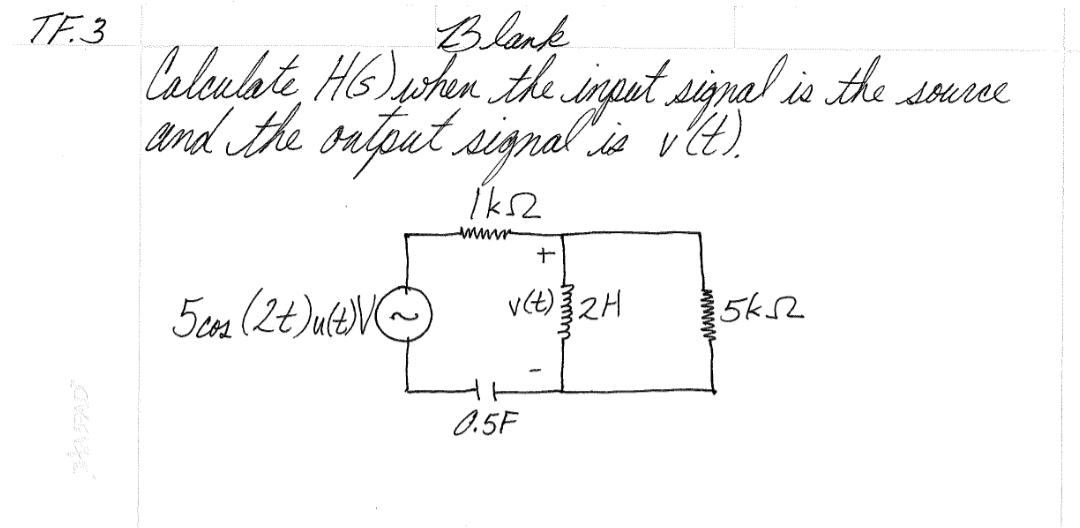 TF.3 Blank
Calculate H(s) when the input signal is the source
and the output signal is v(t).
1kΩ
+
5cos(2t)u(t)V ~ v(t) 2H 5kΩ
-
0.5F